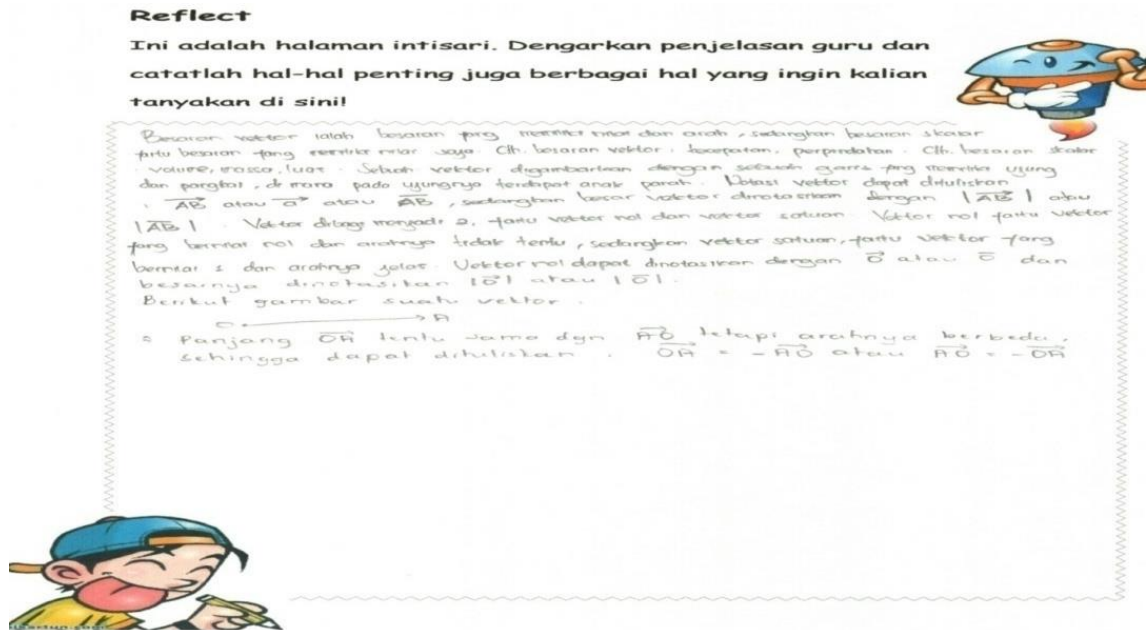 Reflect
Ini adalah halaman intisari. Dengarkan penjelasan guru dan
catatlah hal-hal penting juga berbagai hal yang ingin kalian
tanyakan di sini!
Besaran vektor ialah besaran yang memiliki nilai dan arah, sedangkan besaran skalar
yaitu besaran yang memiliki nilai saja. Cth. besaran vektor : kecepatan, perpindahan. Cth. besaran skalar
: volume, massa, luas. Sebuah vektor digambarkan dengan sebuah garis yang memiliki ujung
dan pangkal, di mana pada ujungnya terdapat anak panah. Notasi vektor dapat dituliskan
: \overrightarrow{AB} atau \overrightarrow{a} atau \overline{AB}, sedangkan besar vektor dinotasikan dengan |\overrightarrow{AB}| atau
|\overline{AB}|. Vektor dibagi menjadi 2, yaitu vektor nol dan vektor satuan. Vektor nol yaitu vektor
yang bernilai nol dan arahnya tidak tentu, sedangkan vektor satuan, yaitu vektor yang
bernilai 1 dan arahnya jelas. Vektor nol dapat dinotasikan dengan \overrightarrow{O} atau \overline{O} dan
besarnya dinotasikan |\overrightarrow{O}| atau |\overline{O}|.
Berikut gambar suatu vektor.
O A
Panjang \overrightarrow{OA} tentu sama dgn \overrightarrow{AO} tetapi arahnya berbeda,
sehingga dapat dituliskan : \overrightarrow{OA} = -\overrightarrow{AO} atau \overrightarrow{AO} = -\overrightarrow{OA}